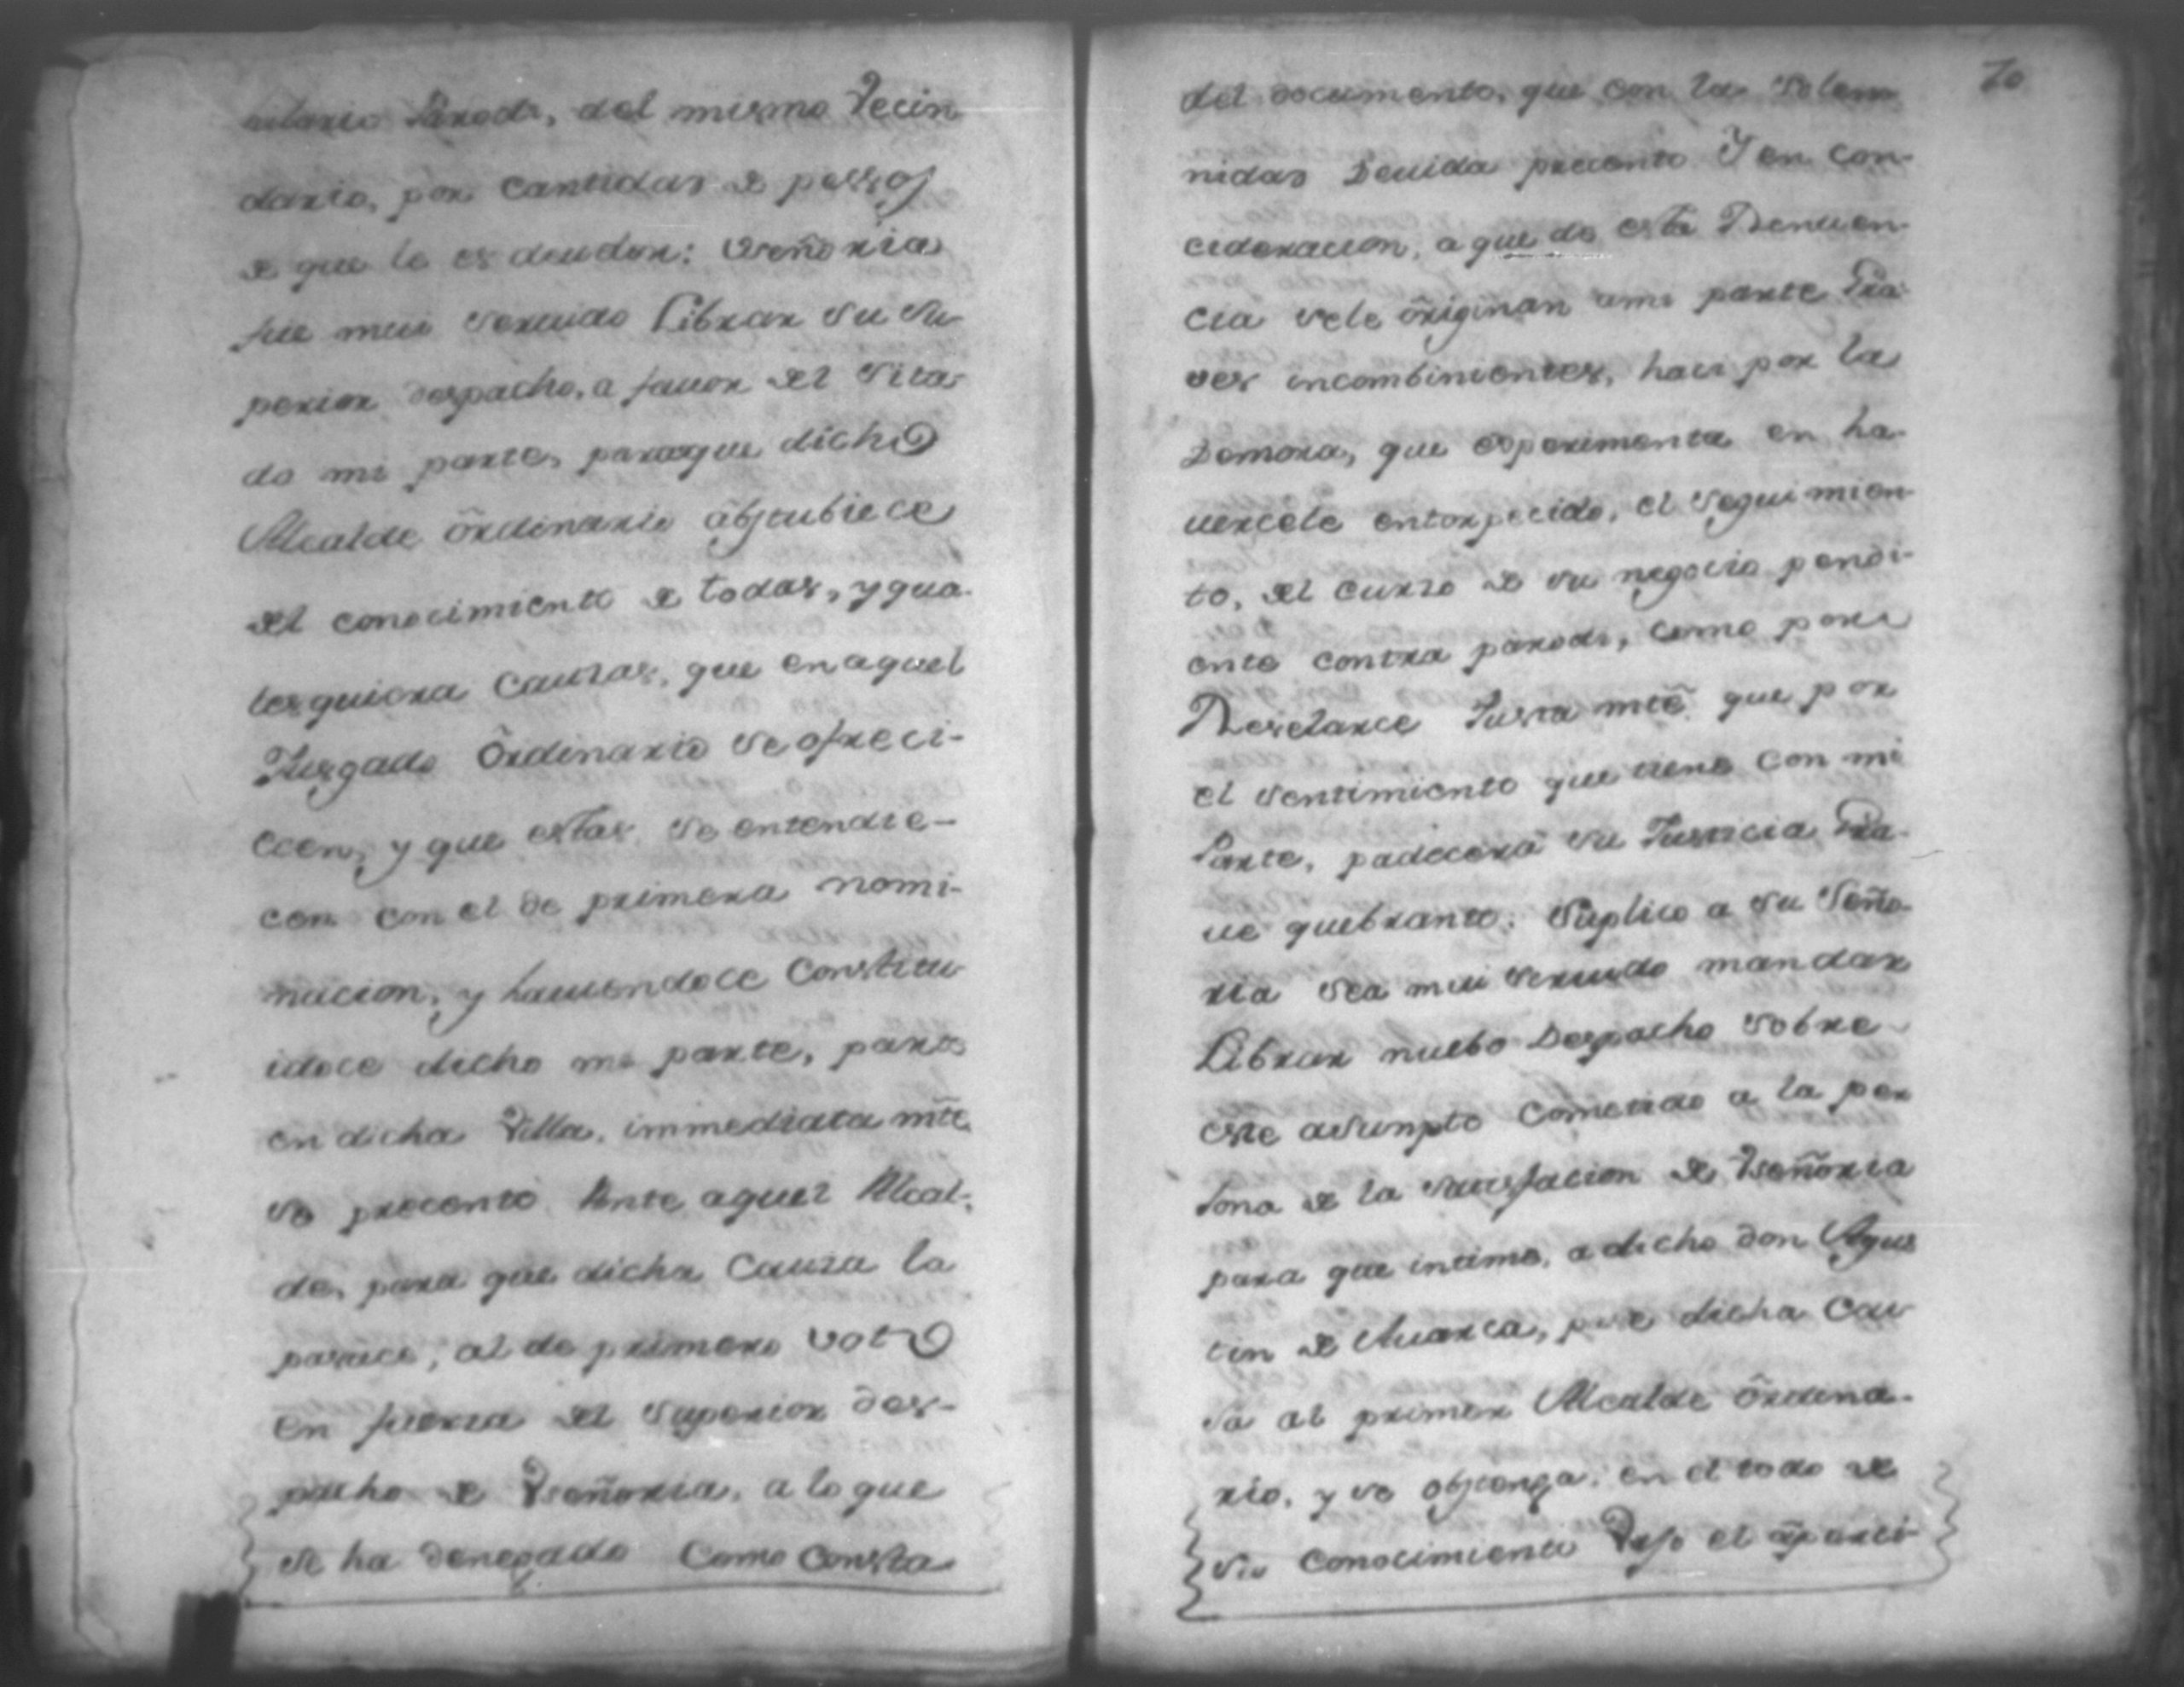 hilario Parodi, del mismo Vecin
dario, por cantidas de pessos
de que le es deudor: Vseñoria
fue mui Seruido Librar su Su
perior despacho, a fauor del Sita
do mi parte, paraque dicho
Alcalde ôrdinario abstubiece
del conocimiento de todas, y qua
lesquiera Causas, que en aquel
Jusgado Ôrdinario se ofreci-
ecen, y que estas se entendie-
cen con el de primera nomi-
nacion, y hauiendoce Constitu
idoce dicho mi parte, parte
en dicha Villa, immediata mte
se precento Ante aquel Alcal-
de, para que dicha Causa la
pasace, al de primero voto
en fuersa del Superior des-
pacho de Vseñoria, a lo que
se ha denegado Como Consta
70
del documento, que con la Solem
nidad Deuida precento Y en con-
cideracion, a que de esta Renuen-
cia sele ôriginan ami parte Gra
ves incombinientes, haci por la
Demora, que experimenta en ha-
uercele entorpecido, el Seguimien
to, del curso de su negocio pendi-
ente contra parodi, como por
Reselarce Justa mte que por
el Sentimiento que tiene con mi
Parte, padecerá su Justicia Gra-
ue quebranto: Suplico a Su Seño-
ria Sea mui Seruido mandar
Librar nuebo Despacho Sobre
este asumpto Cometido a la per
sona de la satisfacion de Vseñoria
para que intime, a dicho don Agus
tin de Abarca, pase dicha Cau
sa al primer Alcalde ôrdina-
rio, y se obstenga, en el todo de
su Conocimiento Vajo el aperci-